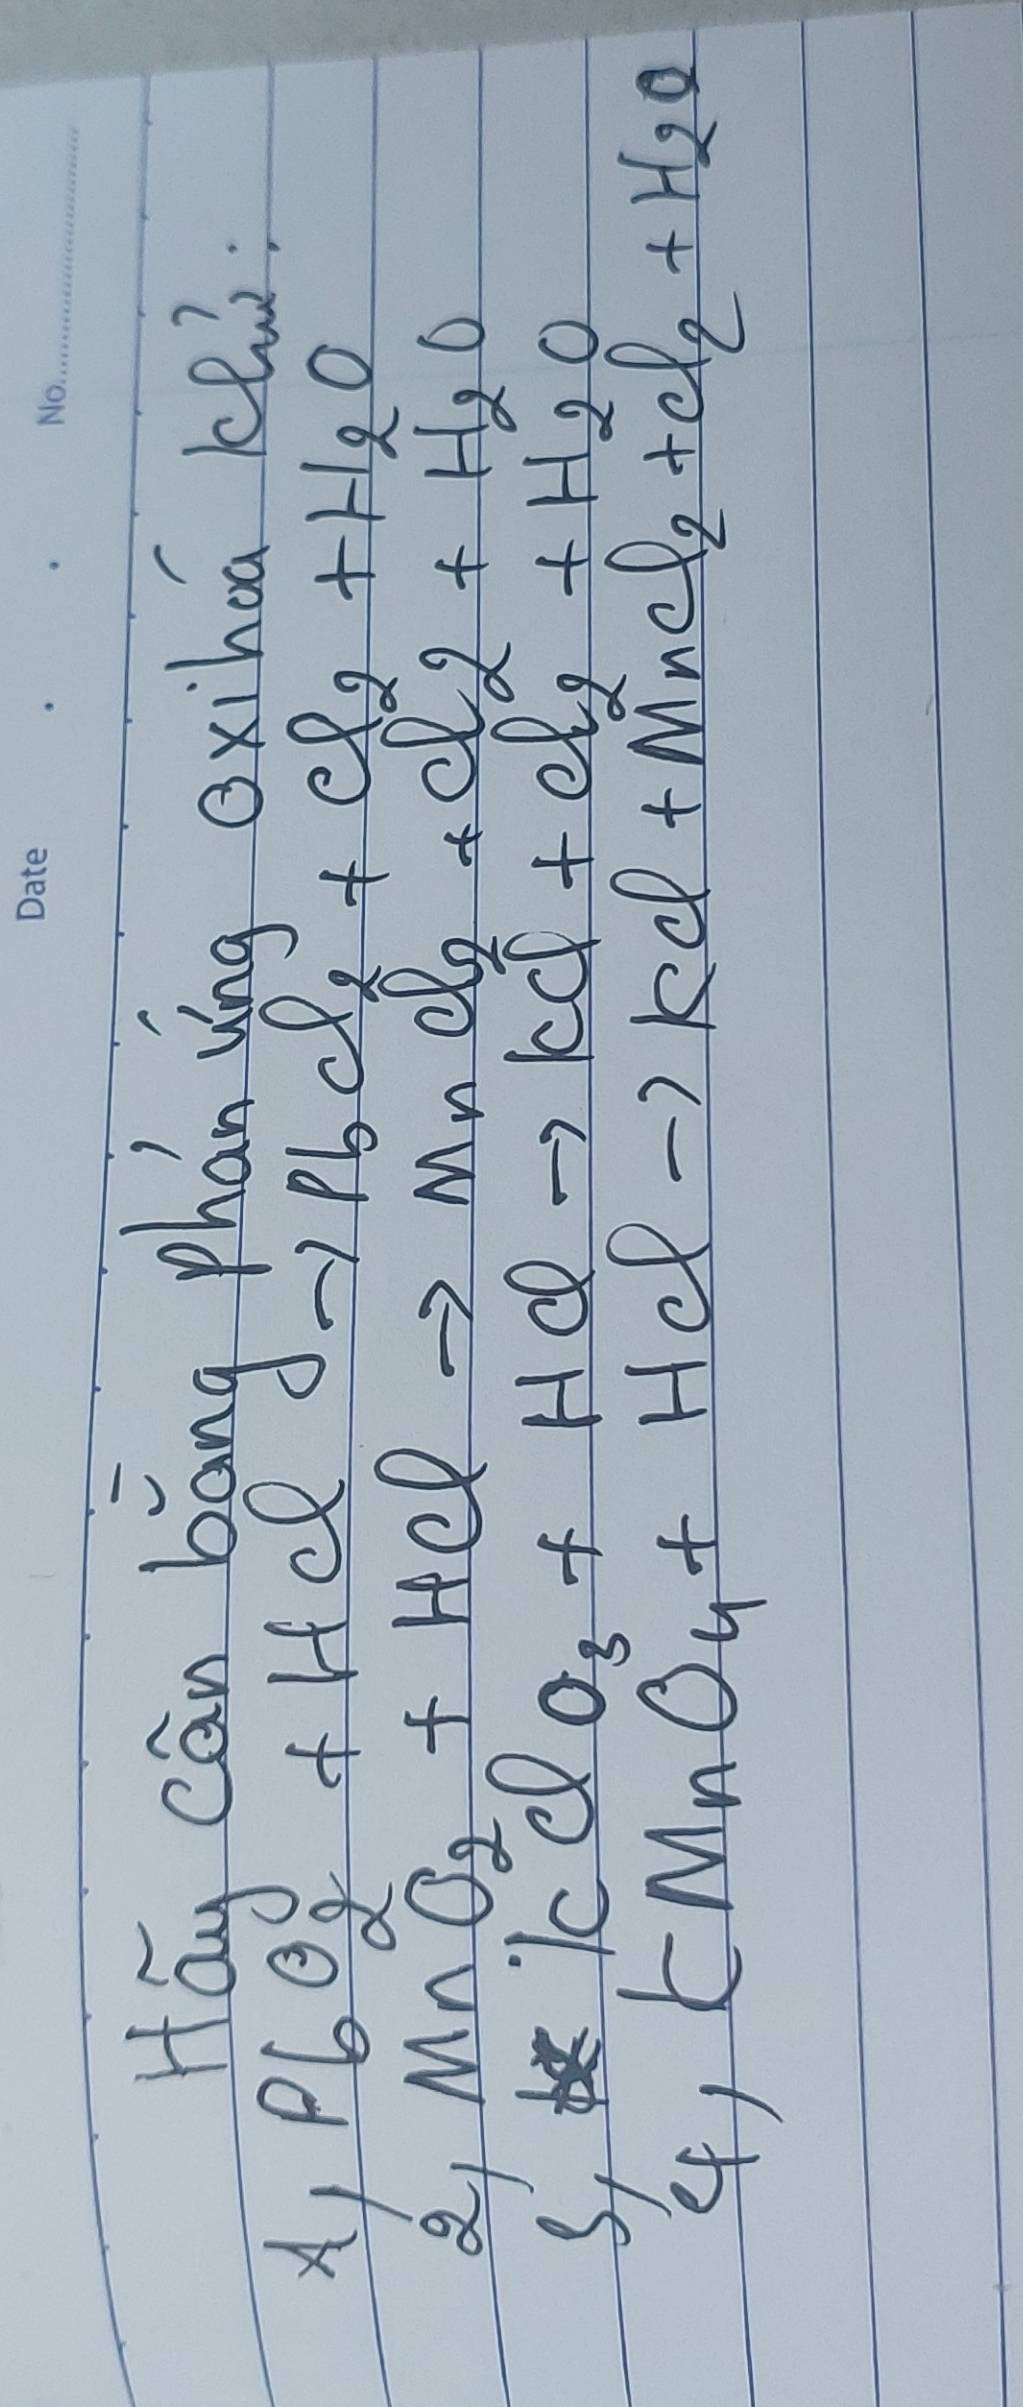 Date . . No.
Hãy cân bằng phản ứng oxi hoá khử:
1, PbO2 + HCl → PbCl2 + Cl2 + H2O
2, MnO2 + HCl → MnCl2 + Cl2 + H2O
3, KClO3 + HCl → KCl + Cl2 + H2O
4, KMnO4 + HCl → KCl + MnCl2 + Cl2 + H2O